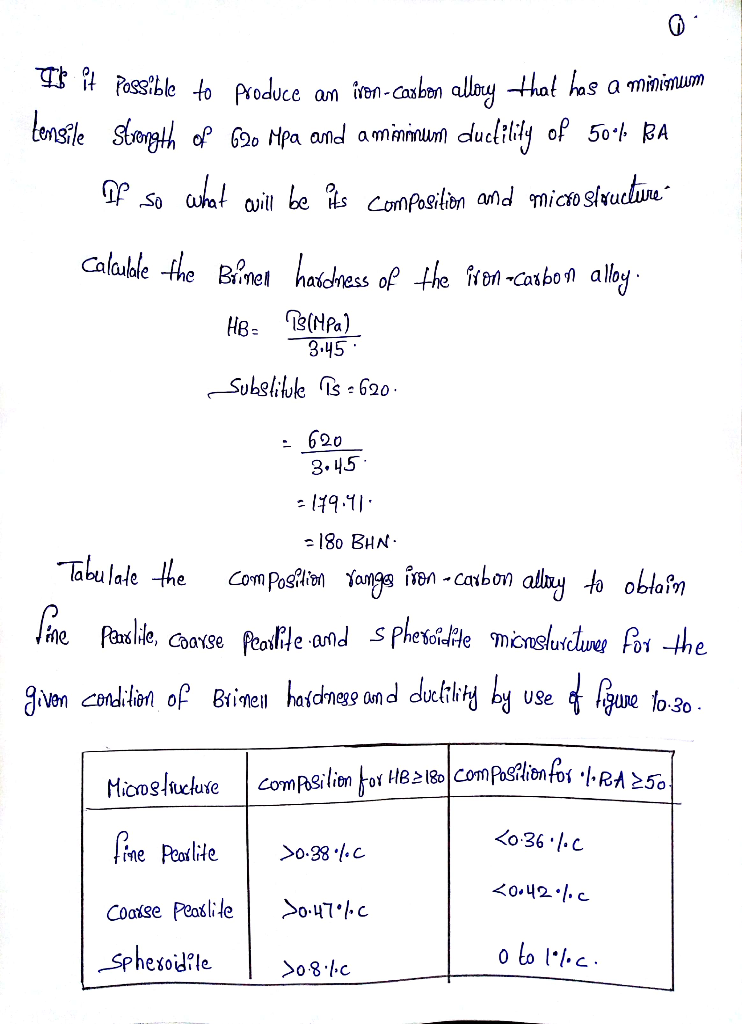 ①
Is it Possible to produce an iron-carbon alloy that has a minimum
tensile strength of 620 Mpa and a minimum ductility of 50% RA
If so what will be its composition and microstructure.
Calculate the Brinell hardness of the iron-carbon alloy.
HB = TS(MPa)
3.45
Substitute TS = 620.
= 620
3.45
= 179.71.
= 180 BHN.
Tabulate the composition ranges iron-carbon alloy to obtain
fine Pearlite, coarse pearlite and spheroidite microsturctures for the
given condition of Brinell hardness and ductility by use of figure 10.30.
Microstructure composition for HB ≥ 180 composition for %RA ≥ 50.
fine Pearlite >0.38%C <0.36%C
Coarse Pearlite >0.47%C <0.42%C
Spheroidite >0.8%C 0 to 1%C.